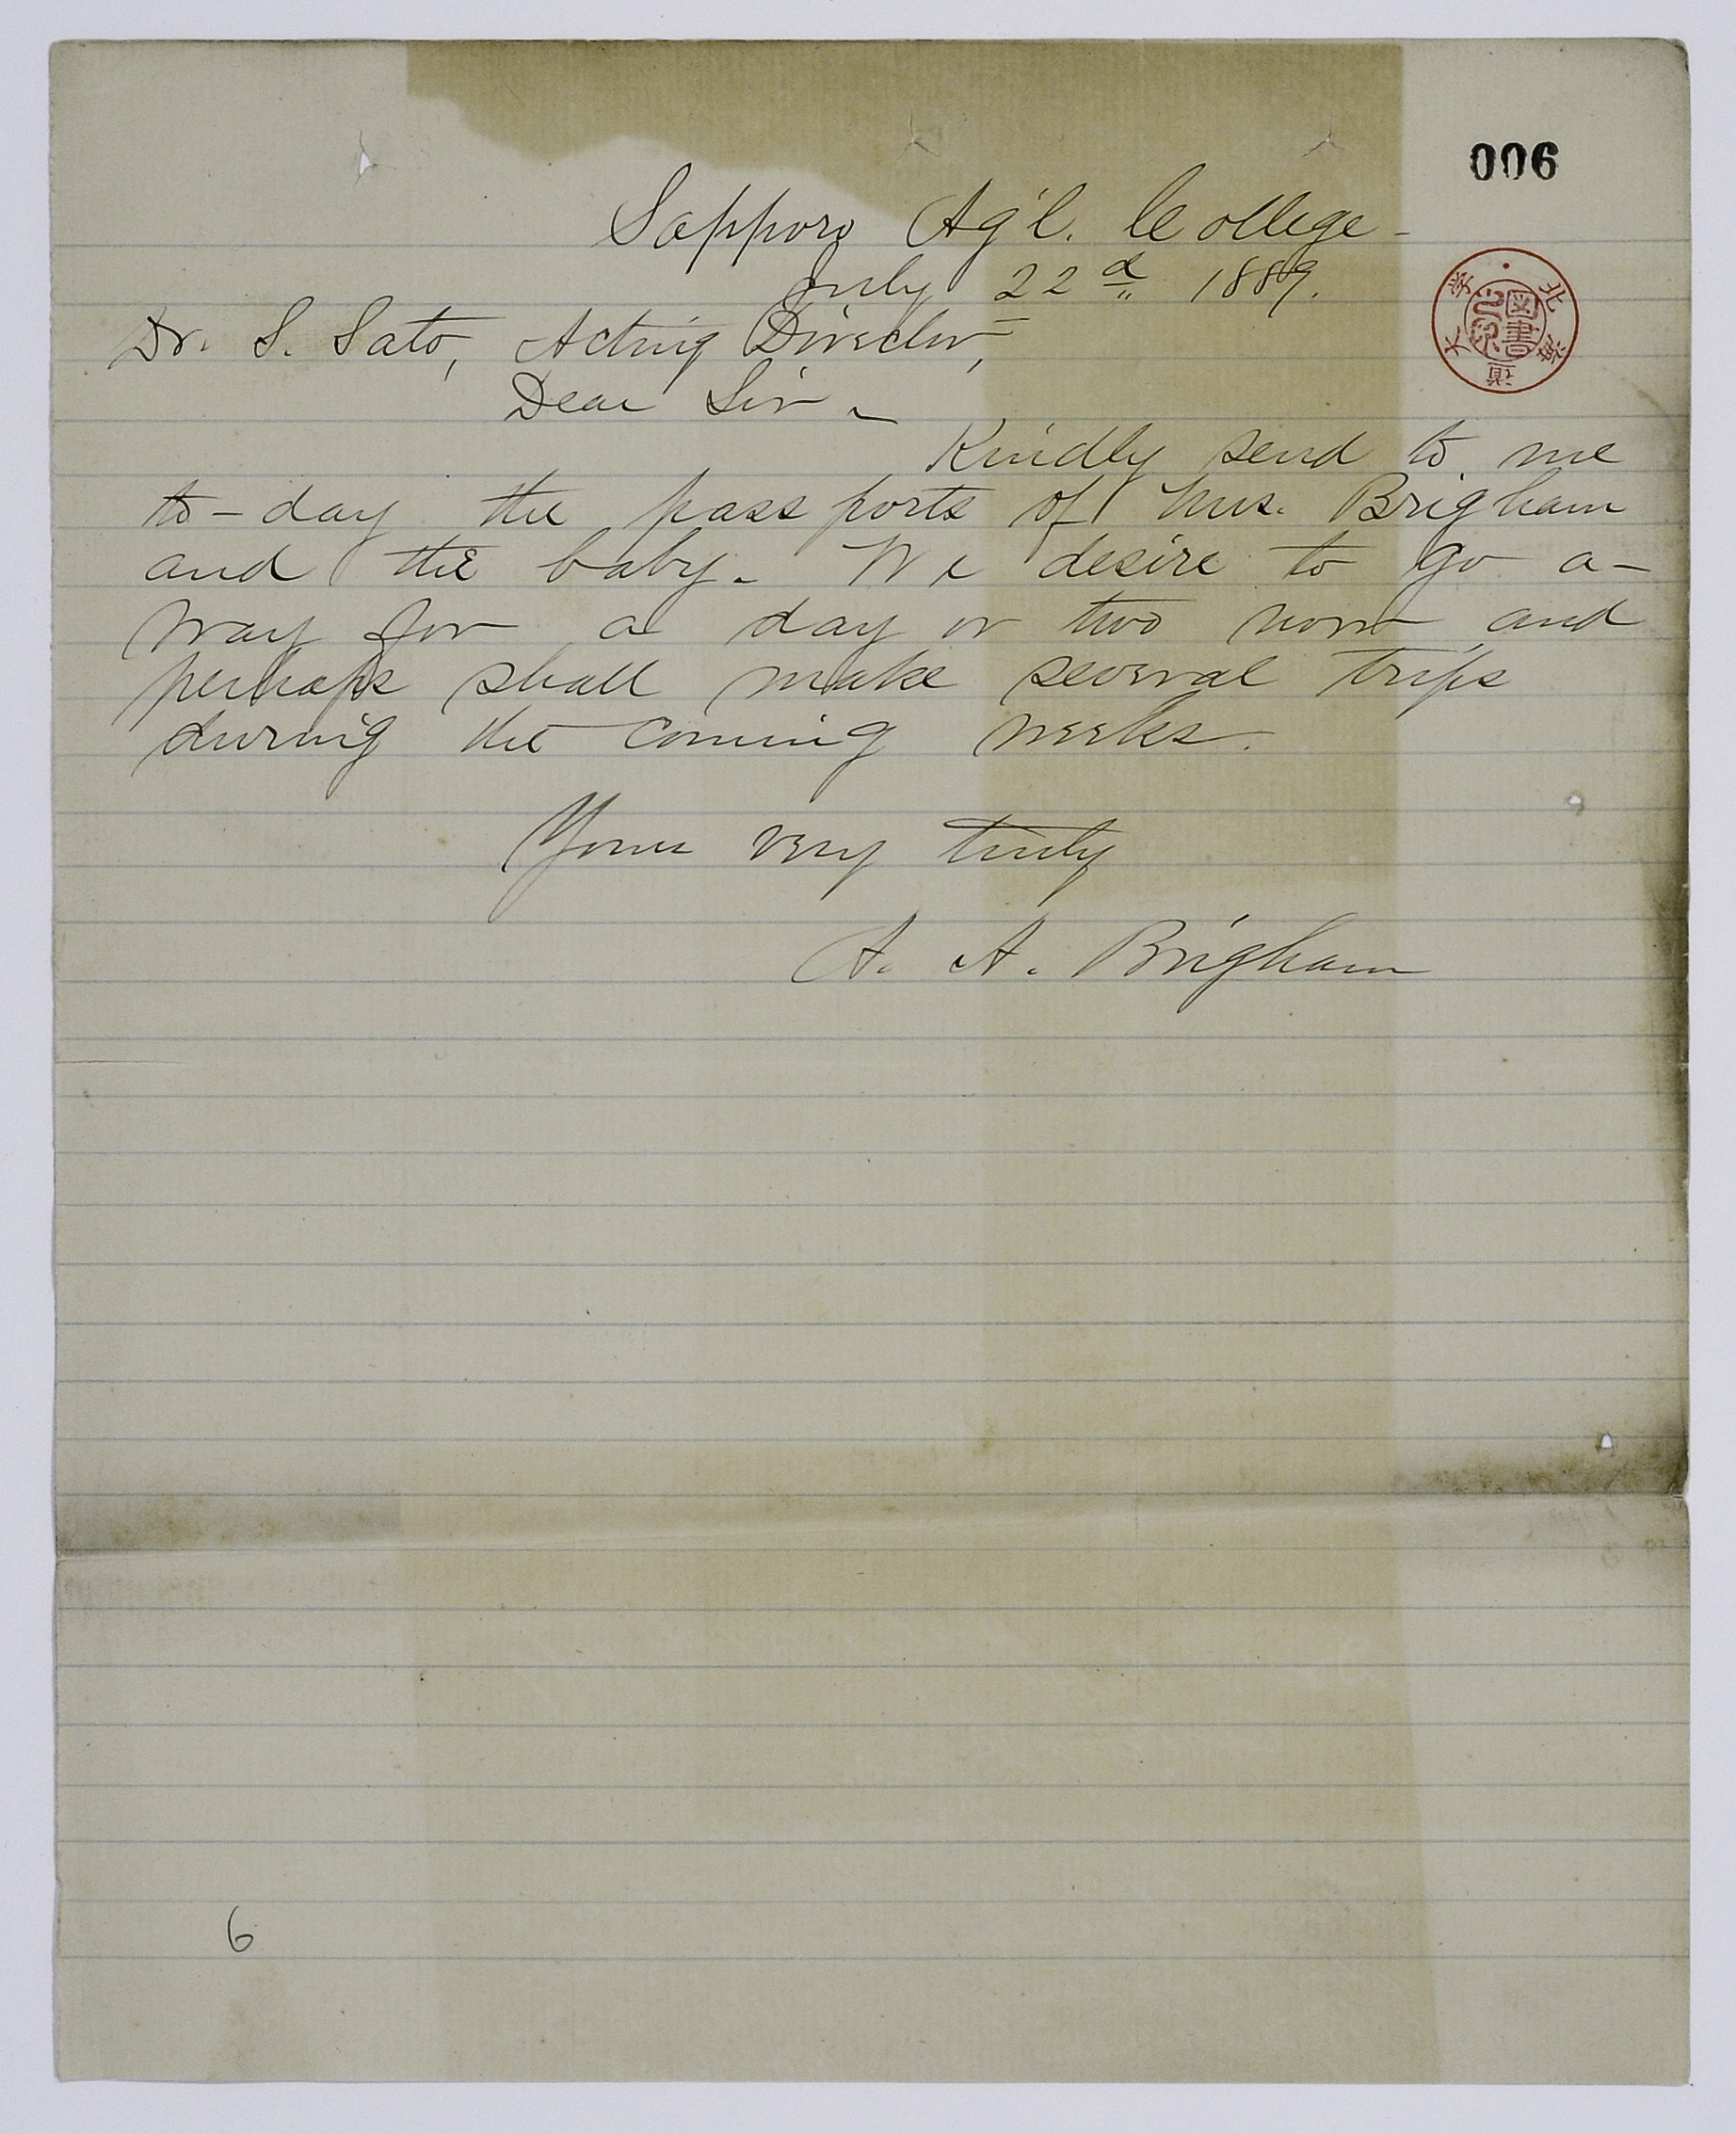 006
Sapporo Ag'l. College-
July 22d 1889.
北海道大学
図書之印
Dr. S. Sato, Acting Director,
Dear Sir -
Kindly send to me
to-day the passports of Mrs. Brigham
and the baby. We desire to go a-
way for a day or two now and
perhaps shall make several trips
during the coming weeks.
Yours very truly
A. A. Brigham
6